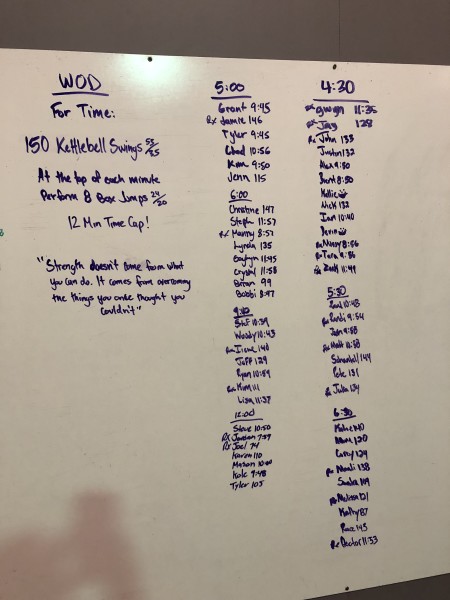 WOD
For Time:
150 Kettlebell Swings 53/35
At the top of each minute
Perform 8 Box Jumps 24/20
12 Min Time Cap!
"Strength doesn't come from what
you can do. It comes from overcoming
the things you once thought you
couldn't"
5:00
Grant 9:45
Rx Jamie 146
Tyler 9:45
Chad 10:56
Kim 9:50
Jenn 115
6:00
Christine 147
Steph 11:57
Rx Manny 8:57
Lynda 135
11:45
Crystal 11:58
Brian 99
Bobbi 8:47
9:
10:39
Woody 10:43
Rx Irene 140
Jeff 129
Ryan 10:59
Rx Kim 111
Lisa 11:37
12:00
Steve 10:50
Rx Jordan 7:59
Rx Joel 74
Karen 110
Mason 10:00
Kole 9:48
Tyler 105
4:30
Rx Gwyn 11:35
Rx Jay 128
Rx John 133
Justin 132
Alex 9:50
Brent 8:50
Kellie
Nick 132
Ian 10:40
Devin
Rx Missy 8:56
Rx Tara 9:86
Zach 11:49
5:30
10:48
Rx Randi 9:54
9:58
Rx Matt 11:58
144
Pete 131
Rx Julia 134
6:30
120
Corey 129
Rx 138
Sandra 109
Rx Melissa 121
Kathy 87
143
Rx Doctor 11:33